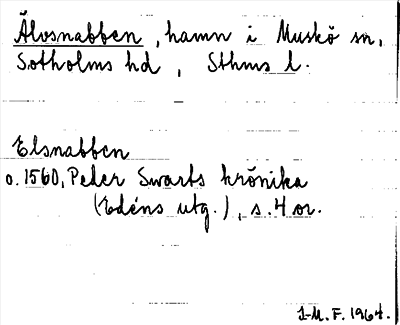 Älvsnabben, hamn i Muskö sn,
Sotholms hd, Sthms l.
Elsnabben
o. 1560, Peder Swarts krönika
(Edéns utg.), s. 4 or.
I-M. F. 1964.